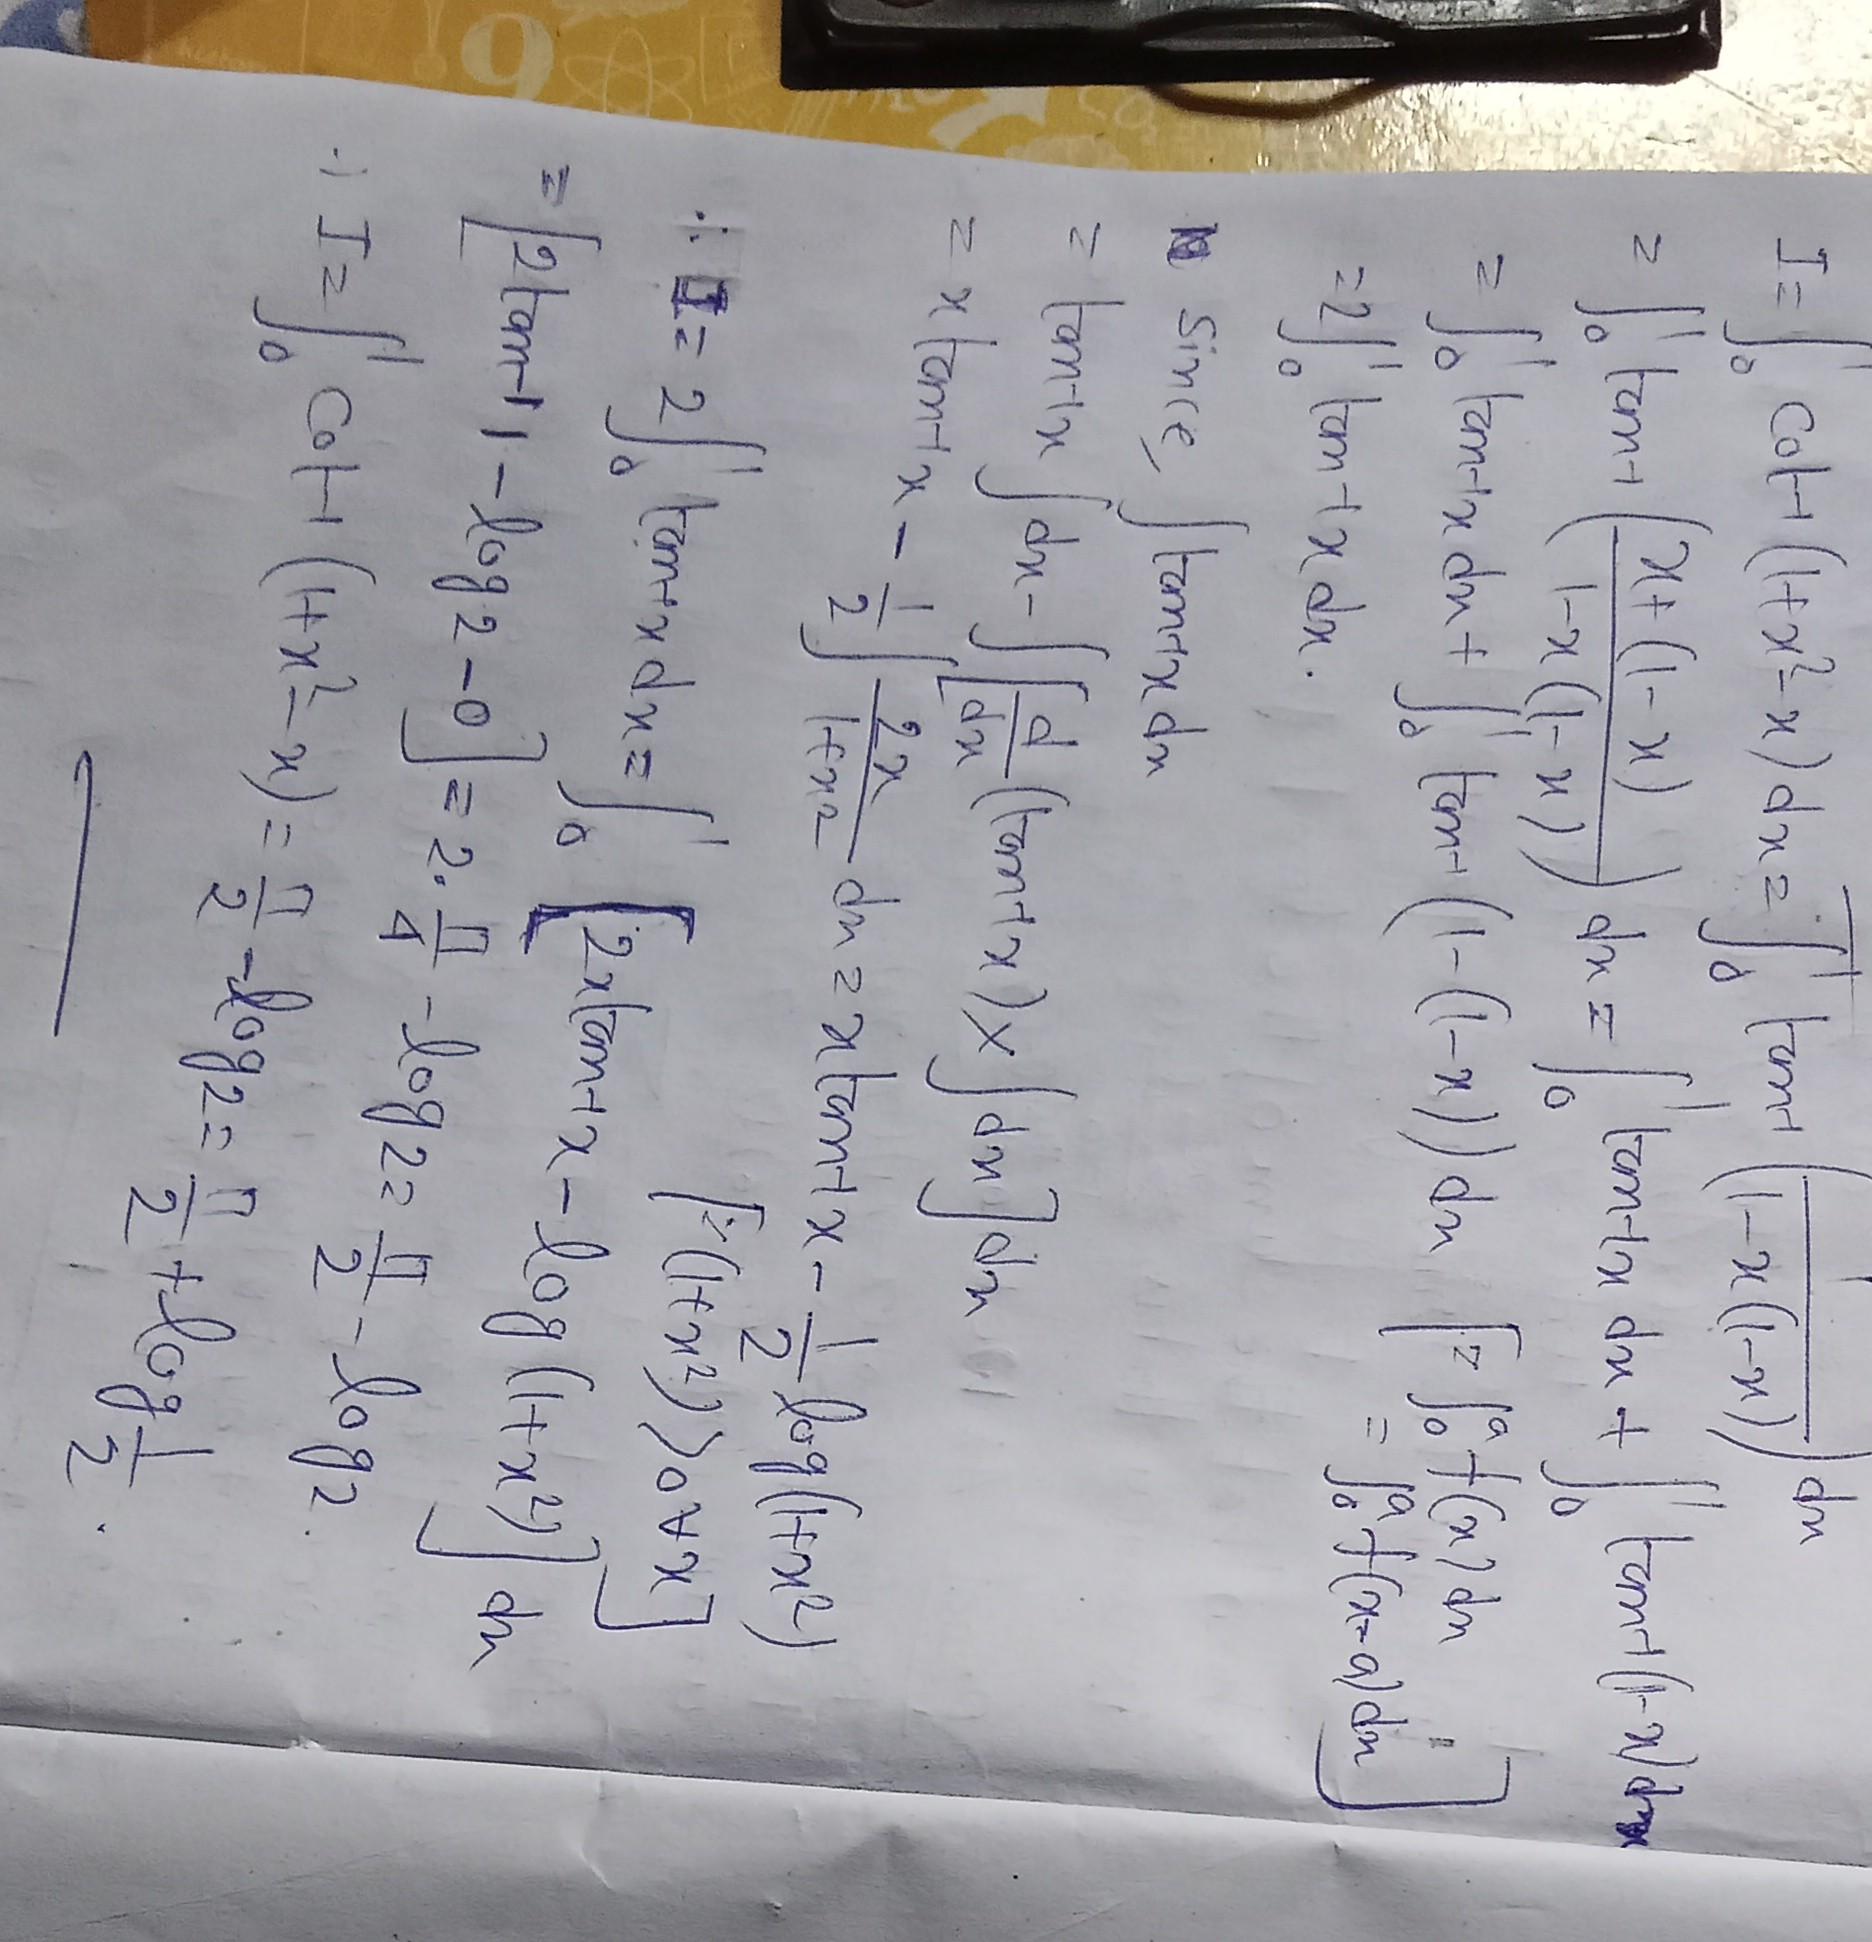 I = ∫₀¹ cot⁻¹(1+x²-x) dx = ∫₀¹ tan⁻¹(1/(1-x(1-x))) dx
= ∫₀¹ tan⁻¹((x+(1-x))/(1-x(1-x))) dx = ∫₀¹ tan⁻¹x dx + ∫₀¹ tan⁻¹(1-x) dx
= ∫₀¹ tan⁻¹x dx + ∫₀¹ tan⁻¹(1-(1-x)) dx [∵ ∫₀ᵃ f(x) dx
= ∫₀ᵃ f(x-a) dx]
= 2∫₀¹ tan⁻¹x dx.
Since, ∫tan⁻¹x dx
= tan⁻¹x ∫dx - ∫[d/dx (tan⁻¹x) × ∫dx] dx
= x tan⁻¹x - 1/2 ∫ 2x/(1+x²) dx = x tan⁻¹x - 1/2 log(1+x²)
[∵ (1+x²)>0 ∀ x]
∴ I = 2∫₀¹ tan⁻¹x dx = ∫₀¹ [2x tan⁻¹x - log(1+x²)] dx
= [2tan⁻¹1 - log2 - 0] = 2·π/4 - log2 = π/2 - log2.
∴ I = ∫₀¹ cot⁻¹(1+x²-x) = π/2 - log2 = π/2 + log 1/2.
6
CO₂